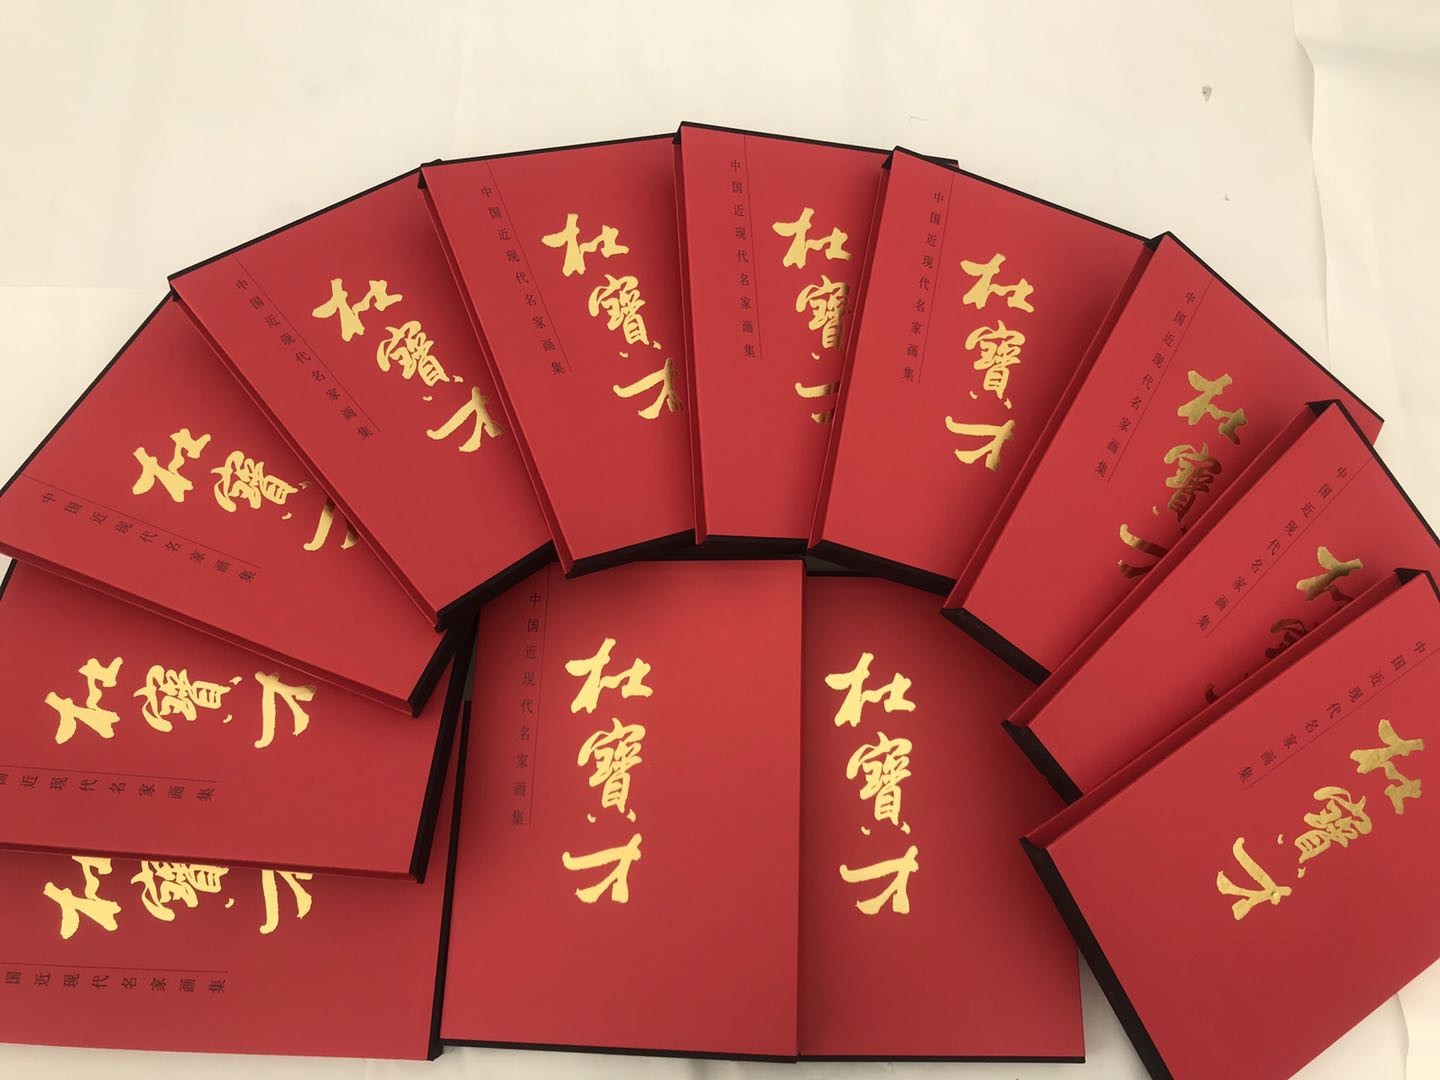 中国近现代名家画集
杜寶才
中国近现代名家画集
杜寶才
中国近现代名家画集
杜寶才
中国近现代名家画集
杜寶才
中国近现代名家画集
杜寶才
中国近现代名家画集
杜寶才
中国近现代名家画集
杜寶
中国近现代名家画集
杜寶才
杜寶才
国近现代名家画集
杜寶才
国近现代名家画集
中国近现代名家画集
杜寶才
杜寶才